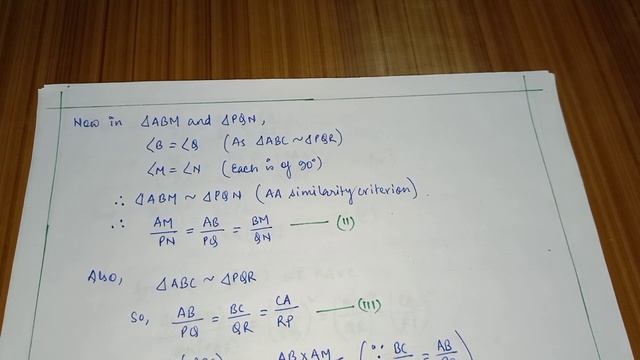 Now in △ABM and △PQN,
∠B = ∠Q (As △ABC ~ △PQR)
∠M = ∠N (Each is of 90°)
∴ △ABM ~ △PQN (AA similarity criterion).
∴ AM/PN = AB/PQ = BM/QN —— (II)
Also, △ABC ~ △PQR
So, AB/PQ = BC/QR = CA/RP —— (III)
AB×AM = (∵ BC = AB